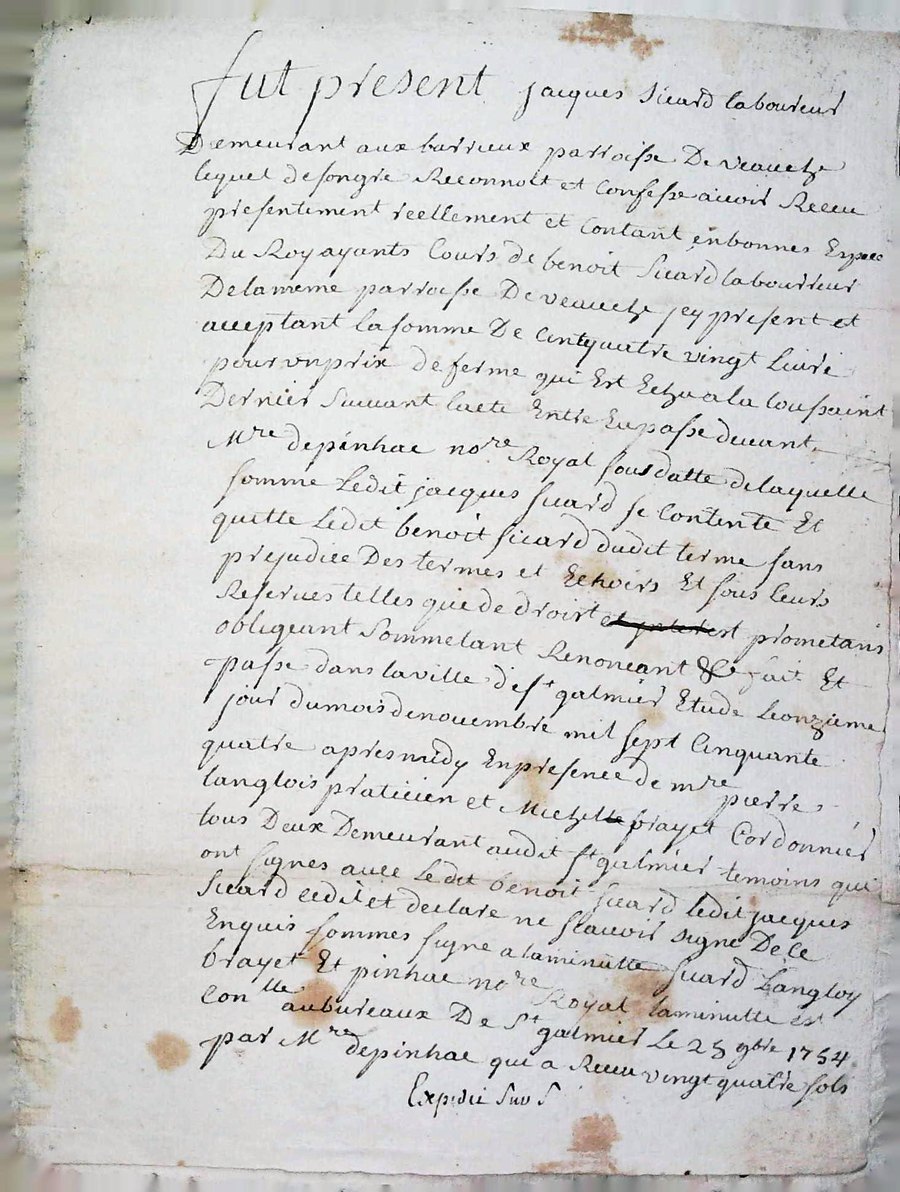 fut present jacques Sicard laboureur
Demeurant aux barrieux parroisse De veauche
lequel desongré Reconnoit et Confesse auoir Receu
presentement réellement et Contant enbonnes Espece
Du Roy ayants Cours de benoit Sicard labourreur
Delameme parroisse De veauche jcy present et
acceptant lasomme De Centquatre vingt Livre
pour vn prix de ferme qui Est Echu ala toussaint
Dernier Suiuant lacte Entre Eu passe deuant
Mre depinhac nore Royal sous datte delaquelle
somme Ledit jacques Sicard se Contente Et
quitte Ledit benoit Sicard dudit terme sans
prejudice Des termes et Echoirs Et sous leurs
Reserves telles que de droist prometans
obligeant Sommetant Renonceant &c fait Et
passe dans laville de st galmier Etude Leonzieme
jour dumois denouembre mil sept Cinquante
quatre apresmidy Enpresence de mre pierre
langlois praticien et Michel brayet Cordonnier
tous Deux Demeurant audit st galmier temoins qui
ont signes auec Ledit benoit Sicard ledit jacques
Sicard cedit et declare ne scauoir signe De Ce
Enquis sommes signe alaminutte Sicard Langloy
brayet Et pinhac nore Royal laminutte est
Conlle aubureaux De St galmier Le 25 9bre 1754
par Mre depinhac qui a Receu vingt quatre sols
Expedié